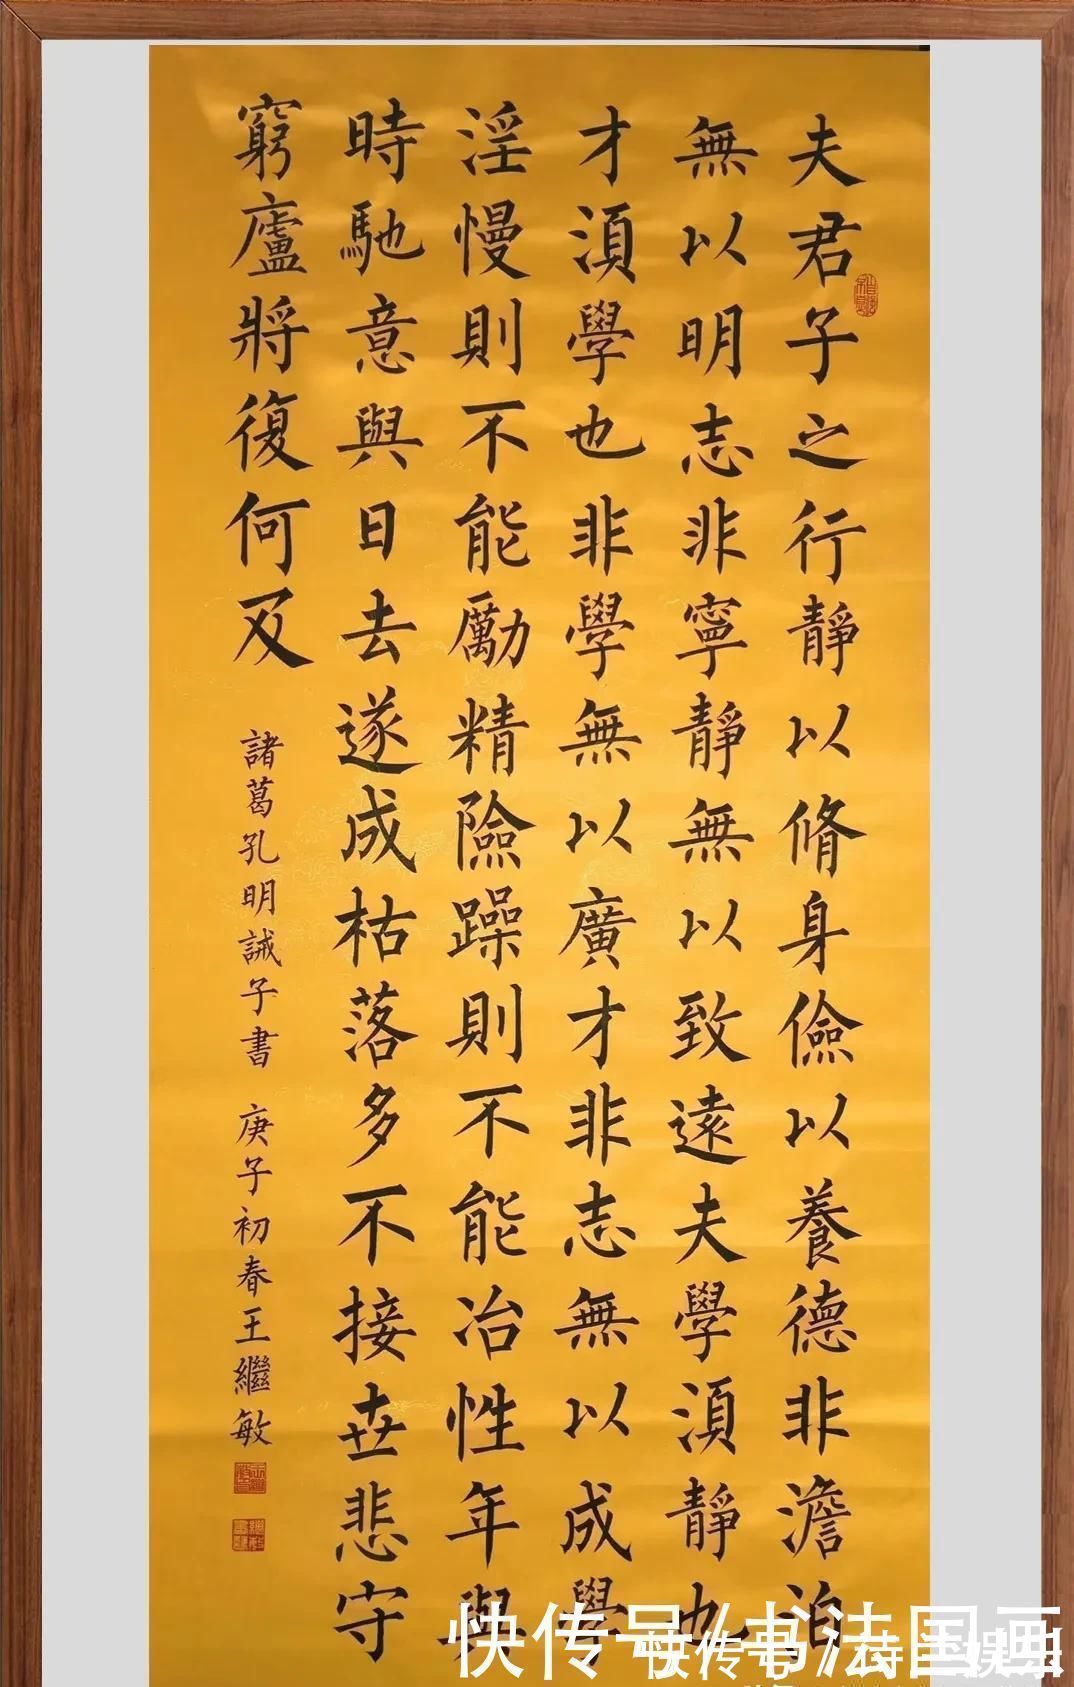 夫君子之行靜以脩身儉以養德非澹泊
無以明志非寧靜無以致遠夫學湏靜也
才湏學也非學無以廣才非志無以成學
淫慢則不能勵精險躁則不能冶性年與
時馳意與日去遂成枯落多不接世悲守
窮廬將復何及
諸葛孔明誡子書 庚子初春王繼敏
快传号/书法国画
快传号